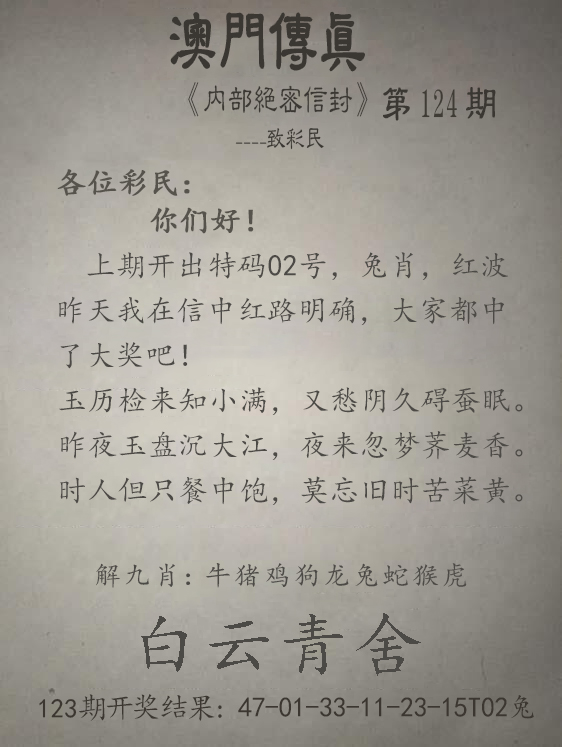 澳門傳眞
《内部絕密信封》第124期
----致彩民
各位彩民：
你们好！
上期开出特码02号，兔肖，红波
昨天我在信中红路明确，大家都中
了大奖吧！
玉历检来知小满，又愁阴久碍蚕眠。
昨夜玉盘沉大江，夜来忽梦荞麦香。
时人但只餐中饱，莫忘旧时苦菜黄。
解九肖：牛猪鸡狗龙兔蛇猴虎
白云青舍
123期开奖结果：47-01-33-11-23-15T02兔